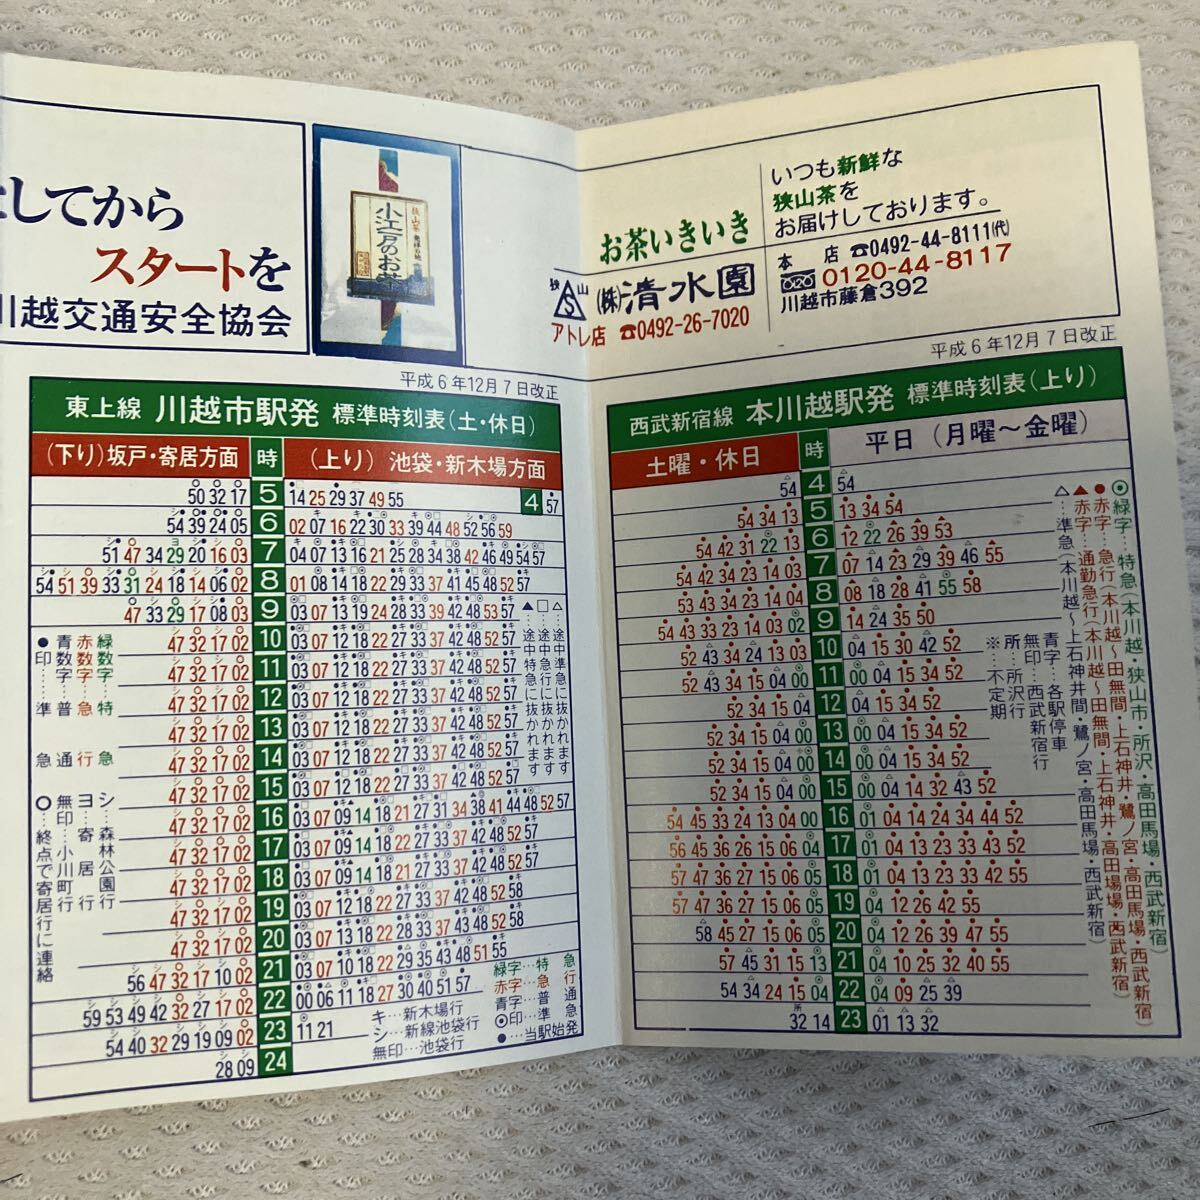 してから
スタートを
川越交通安全協会
狭山茶
小江戸のお茶
お茶いきいき
狭山
(株)清水園
アトレ店 ☎0492-26-7020
いつも新鮮な
狭山茶を
お届けしております。
本 店 ☎0492-44-8111(代)
0120-44-8117
川越市藤倉392
平成6年12月7日改正
東上線 川越市駅発 標準時刻表(土・休日)
(下り)坂戸・寄居方面 時 (上り) 池袋・新木場方面
50 32 17 5 14 25 29 37 49 55 4 57
54 39 24 05 6 02 07 16 22 30 33 39 44 48 52 56 59
51 47 34 29 20 16 03 7 04 07 13 16 21 25 28 34 38 42 46 49 54 57
54 51 39 33 31 24 18 14 06 02 8 01 08 14 18 22 29 33 37 41 45 48 52 57
47 33 29 17 08 03 9 03 07 13 19 24 28 33 39 42 48 53 57
47 32 17 02 10 03 07 12 18 22 27 33 37 42 48 52 57
47 32 17 02 11 03 07 12 18 22 27 33 37 42 48 52 57
47 32 17 02 12 03 07 12 18 22 27 33 37 42 48 52 57
47 32 17 02 13 03 07 12 18 22 27 33 37 42 48 52 57
47 32 17 02 14 03 07 12 18 22 27 33 37 42 48 52 57
47 32 17 02 15 03 07 12 18 22 27 33 37 42 48 52 57
47 32 17 02 16 03 07 09 14 18 21 27 31 34 38 41 44 48 52 57
47 32 17 02 17 03 07 12 18 22 27 33 37 42 48 52 57
47 32 17 02 18 03 07 09 14 18 21 27 33 37 42 48 52 57
47 32 17 02 19 03 07 12 18 22 27 33 37 42 48 52 58
47 32 17 02 20 03 07 13 18 22 28 33 37 43 48 52 58
56 47 32 17 10 02 21 03 07 10 18 22 29 35 43 48 51 55
59 53 49 42 32 27 17 02 22 00 06 11 18 27 30 40 51 57
54 40 32 29 19 09 02 23 11 21
28 09 24
緑数字…特急
赤数字…急行
青数字…普通
●印…準急
シ…森林公園行
ヨ…寄居行
無印…小川町行
○…終点で寄居行に連絡
△…途中準急に抜かれます
□…途中急行に抜かれます
▲…途中特急に抜かれます
キ…新木場行
シ…新線池袋行
無印…池袋行
緑字…特急
赤字…急行
青字…普通
◎印…準急
●…当駅始発
平成6年12月7日改正
西武新宿線 本川越駅発 標準時刻表(上り)
土曜・休日 時 平日 (月曜〜金曜)
54 4 54
54 34 13 5 13 34 54
54 42 31 22 13 6 12 22 26 39 53
54 42 34 23 14 03 7 07 14 23 29 39 46 55
53 43 34 23 14 04 8 08 18 28 41 55 58
54 43 33 23 03 02 9 14 24 35 50
52 43 34 24 13 03 10 04 15 30 42 52
52 43 34 15 04 00 11 00 04 15 34 52
52 34 15 04 12 04 15 34 52
52 34 15 04 00 13 00 04 15 34 52
52 34 15 04 00 14 00 04 15 34 52
52 34 15 04 00 15 00 04 14 32 43 52
54 45 33 24 13 04 00 16 01 04 14 24 34 44 53
56 45 36 26 15 06 04 17 01 04 13 23 33 42 52
57 47 36 27 16 05 04 18 01 04 13 23 33 42 55
57 47 36 27 15 06 05 19 04 12 26 42 55
58 45 27 15 06 05 20 04 12 26 39 47 55
57 45 31 15 13 21 04 10 25 32 40 55
54 34 24 15 04 22 04 09 25 39
32 14 23 01 13 32
緑字…特急(本川越・狭山市・所沢・高田馬場・西武新宿)
●赤字…急行(本川越〜田無間・上石神井・鷺ノ宮・高田馬場・西武新宿)
▲赤字…通勤急行(本川越〜田無間・上石神井・高田馬場・西武新宿)
△…準急(本川越〜上石神井間・鷺ノ宮・高田馬場・西武新宿)
青字…各駅停車
無印…西武新宿行
所…所沢行
※…不定期